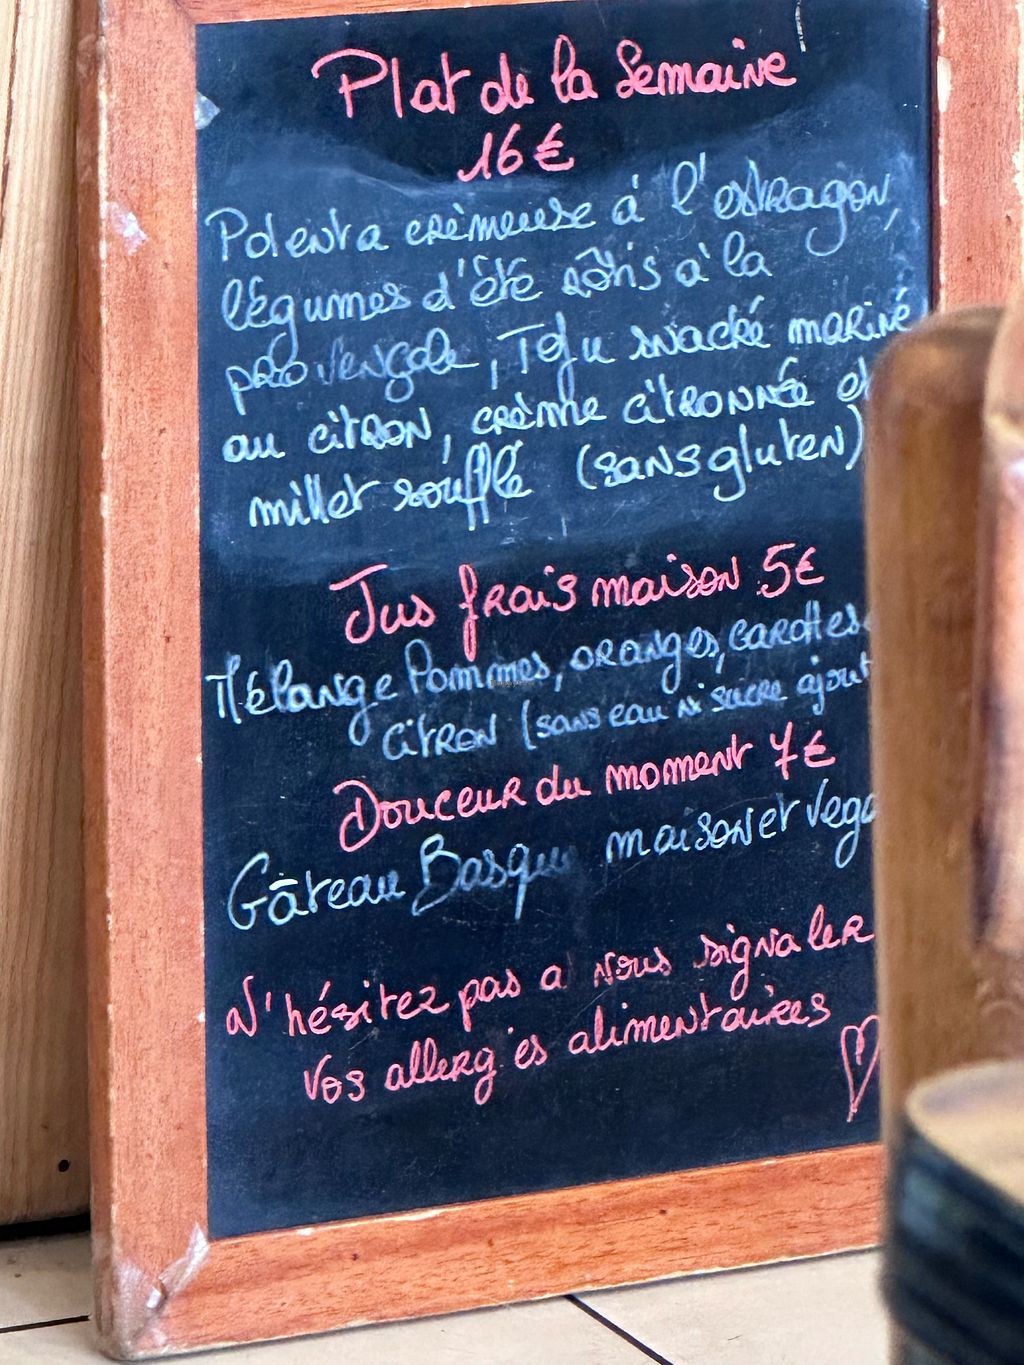 Plat de la Semaine
16€
Polenta crèmeuse à l'estragon,
légumes d'été rôtis à la
provençale, Tofu snacké mariné
au citron, crème citronnée et
millet soufflé (sans gluten)
Jus frais maison 5€
Mélange Pommes, oranges, carottes
citron (sans eau ni sucre ajout
Douceur du moment 7€
Gâteau Basque maison et Vega
N'hésitez pas a nous signaler
vos allergies alimentaires